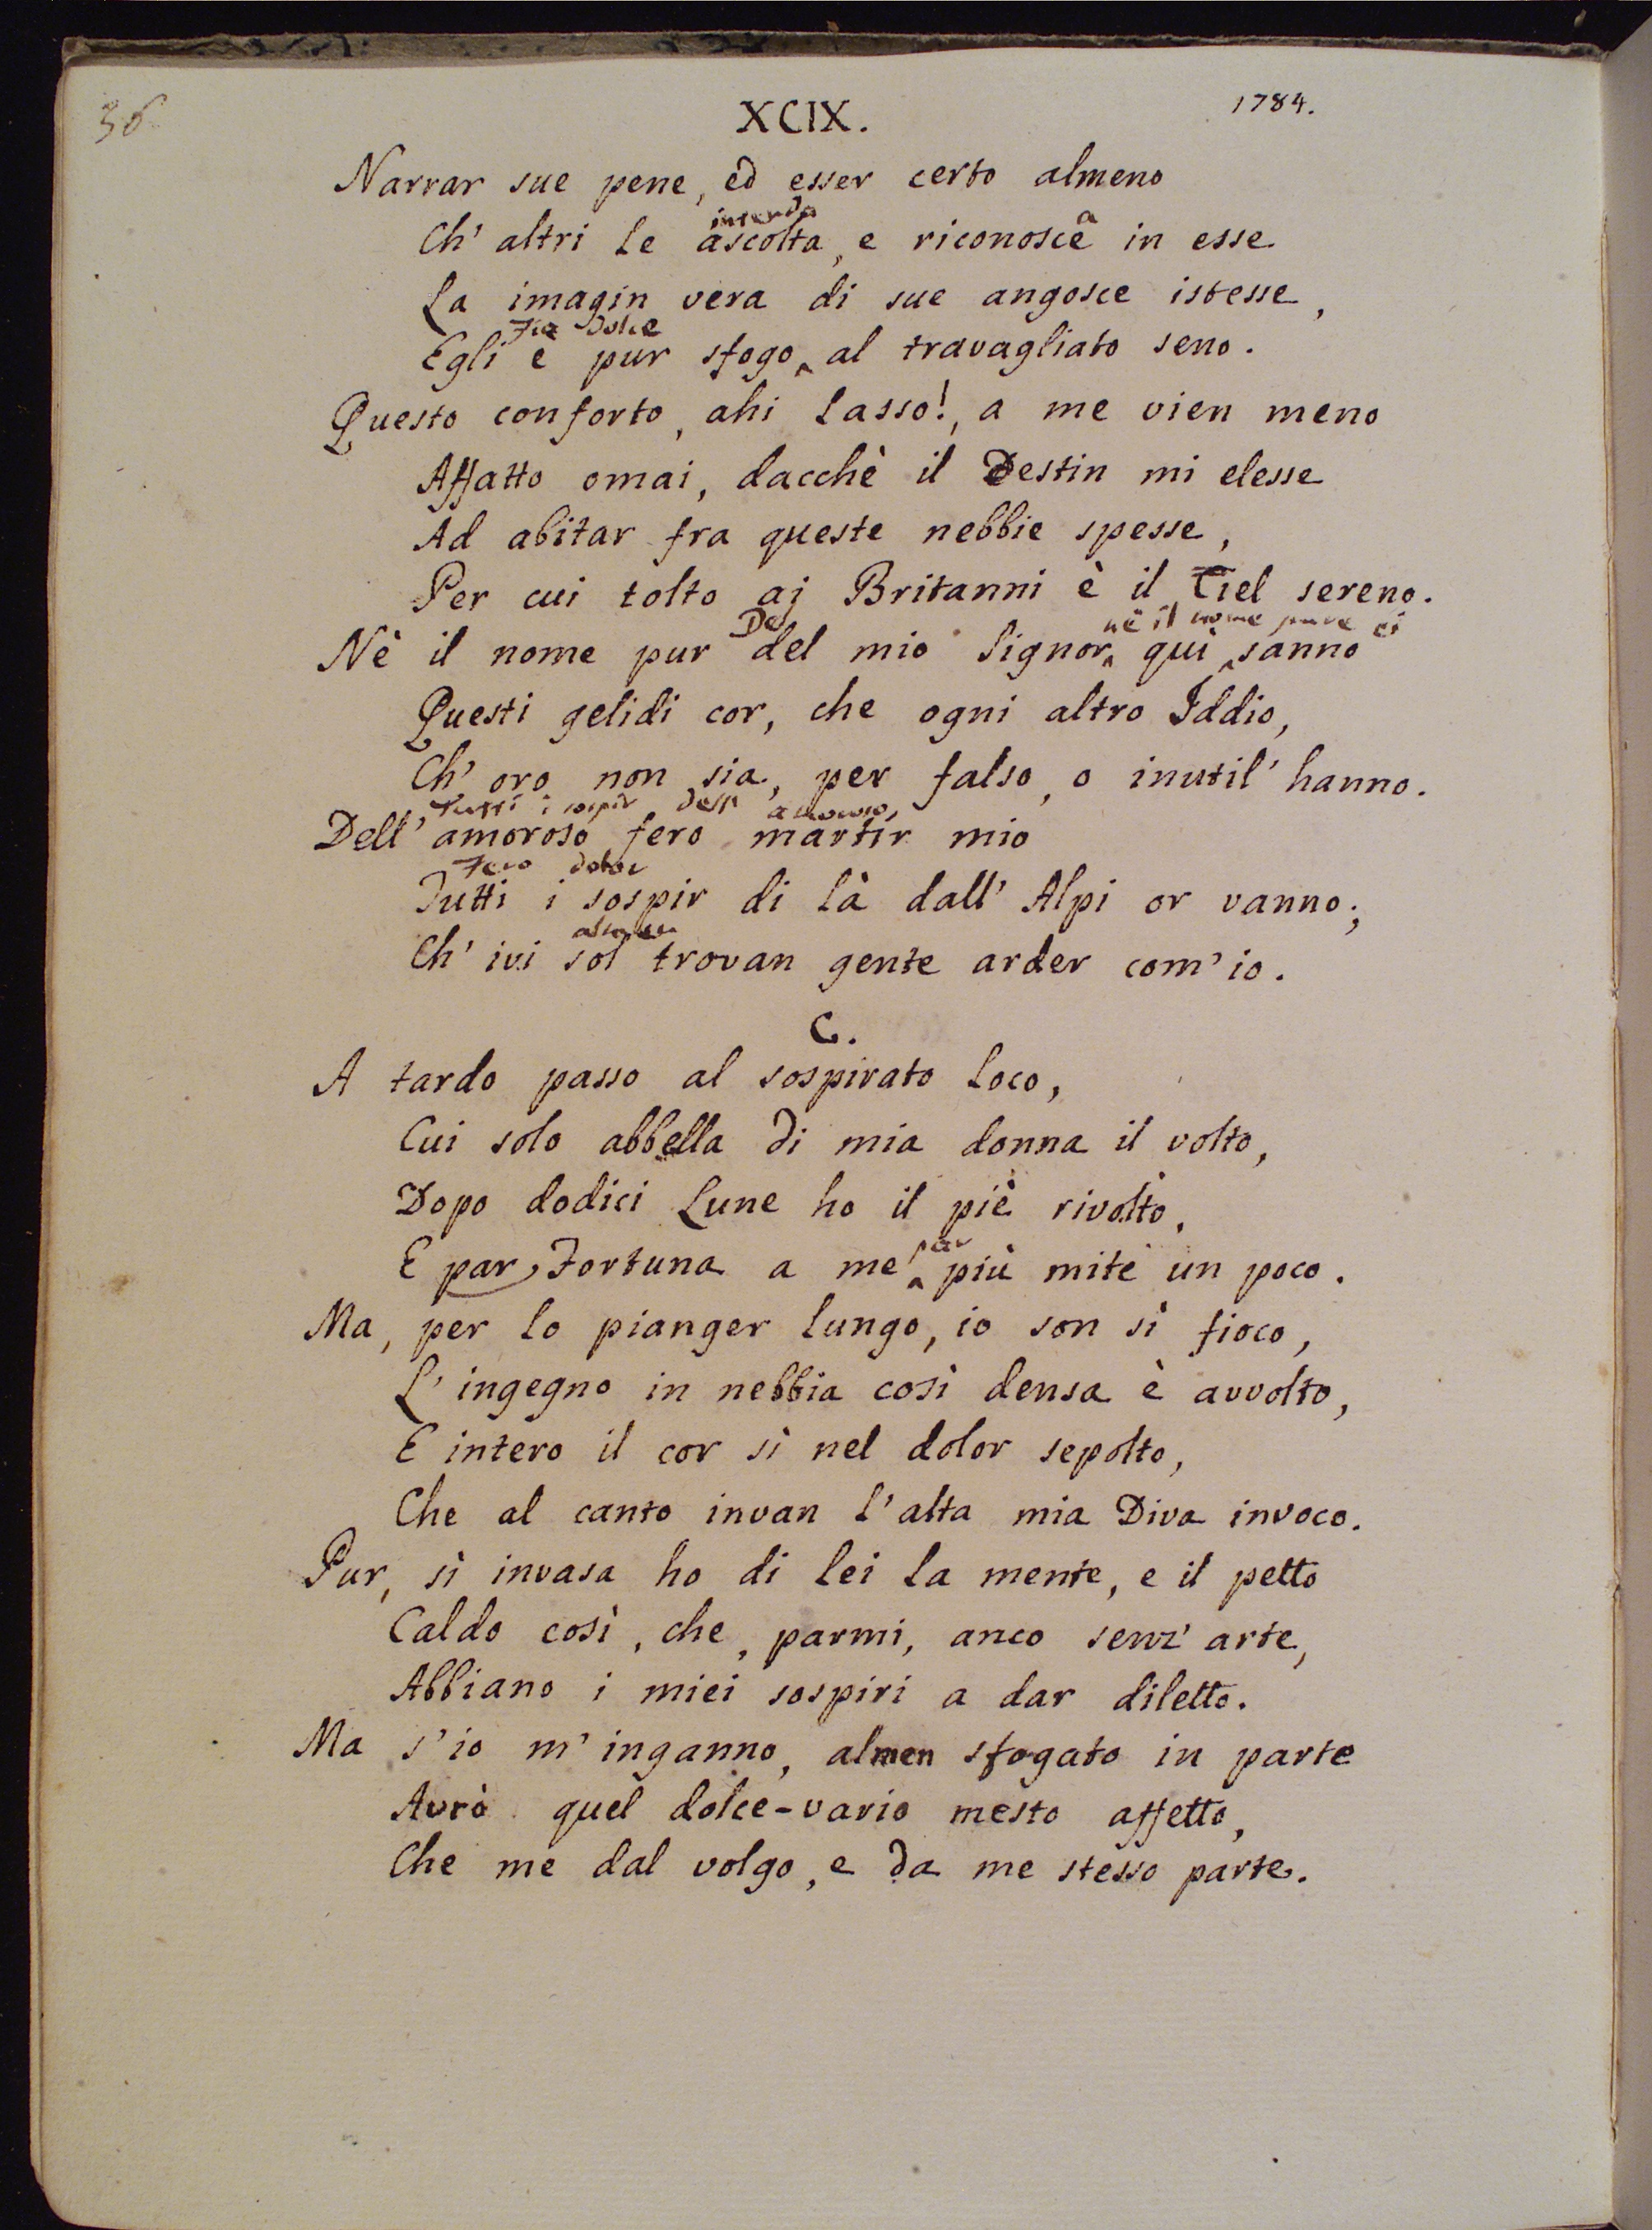 36
XCIX.
1784.
Narrar sue pene, ed esser certo almeno
intenda
a
Ch' altri le ascolta, e riconosce in esse
La imagin vera di sue angosce istesse,
Fia dolce
Egli è pur sfogo al travagliato seno.
Questo conforto, ahi lasso!, a me vien meno
Affatto omai, dacchè il Destin mi elesse
Ad abitar fra queste nebbie spesse,
Per cui tolto ai Britanni è il Ciel sereno.
De
nè il nome pure ei
Nè il nome pur del mio Signor quì sanno
Questi gelidi cor, che ogni altro Iddio,
Ch' oro non sia, per falso, o inutil' hanno.
Tutti i sospir dell' amoroso,
Dell' amoroso fero martir mio
Fero dolor
Tutti i sospir di là dall' Alpi or vanno;
Ch' ivi sol trovan gente arder com' io.
C.
A tardo passo al sospirato loco,
Cui solo abbella di mia donna il volto,
Dopo dodici Lune ho il piè rivolto,
par
E par Fortuna a me più mite un poco.
Ma, per lo pianger lungo, io son sì fioco,
L' ingegno in nebbia così densa è avvolto,
E intero il cor sì nel dolor sepolto,
Che al canto invan l' alta mia Diva invoco.
Pur, sì invasa ho di lei la mente, e il petto
Caldo così, che, parmi, anco senz' arte,
Abbiano i miei sospiri a dar diletto.
Ma s' io m' inganno, almen sfogato in parte
Avrò quel dolce-vario mesto affetto,
Che me dal volgo, e da me stesso parte.